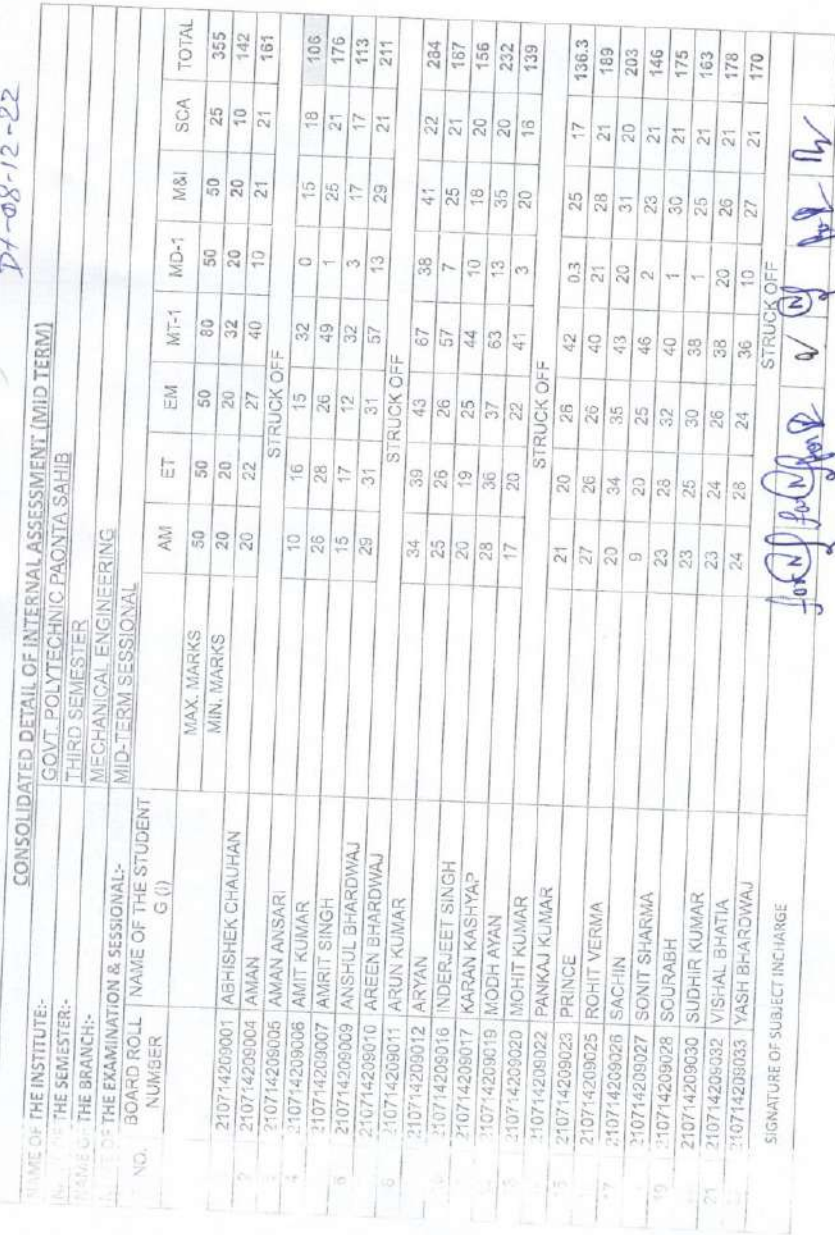 Dt-08-12-22
CONSOLIDATED DETAIL OF INTERNAL ASSESSMENT (MID TERM)
NAME OF THE INSTITUTE:- GOVT. POLYTECHNIC PAONTA SAHIB
THE SEMESTER:- THIRD SEMESTER
THE BRANCH:- MECHANICAL ENGINEERING
THE EXAMINATION & SESSIONAL:- MID-TERM SESSIONAL
NO. BOARD ROLL NUMBER NAME OF THE STUDENT G (I) AM ET EM MT-1 MD-1 M&I SCA TOTAL
MAX. MARKS 50 50 50 80 50 50 25 355
MIN. MARKS 20 20 20 32 20 20 10 142
210714209001 ABHISHEK CHAUHAN 20 22 27 40 10 21 21 161
210714209004 AMAN STRUCK OFF
210714209005 AMAN ANSARI 10 16 15 32 0 15 18 106
210714209006 AMIT KUMAR 26 28 26 49 1 25 21 176
210714209007 AMRIT SINGH 15 17 12 32 3 17 17 113
210714209009 ANSHUL BHARDWAJ 29 31 31 57 13 29 21 211
210714209010 AREEN BHARDWAJ STRUCK OFF
210714209011 ARUN KUMAR 34 39 43 67 38 41 22 284
210714209012 ARYAN 25 26 26 57 7 25 21 187
210714209016 INDERJEET SINGH 20 19 25 44 10 18 20 156
210714209017 KARAN KASHYAP 28 36 37 63 13 35 20 232
210714209019 MODH AYAN 17 20 22 41 3 20 16 139
210714209020 MOHIT KUMAR STRUCK OFF
210714209022 PANKAJ KUMAR 21 20 26 42 0.3 25 17 136.3
210714209023 PRINCE 27 26 26 40 21 28 21 189
210714209025 ROHIT VERMA 20 34 35 43 20 31 20 203
210714209026 SACHIN 9 20 25 46 2 23 21 146
210714209027 SONIT SHARMA 23 28 32 40 1 30 21 175
210714209028 SOURABH 23 25 30 38 1 25 21 163
210714209030 SUDHIR KUMAR 23 24 26 38 20 26 21 178
21 210714209032 VISHAL BHATIA 24 28 24 36 10 27 21 170
210714209033 YASH BHARDWAJ STRUCK OFF
SIGNATURE OF SUBJECT INCHARGE